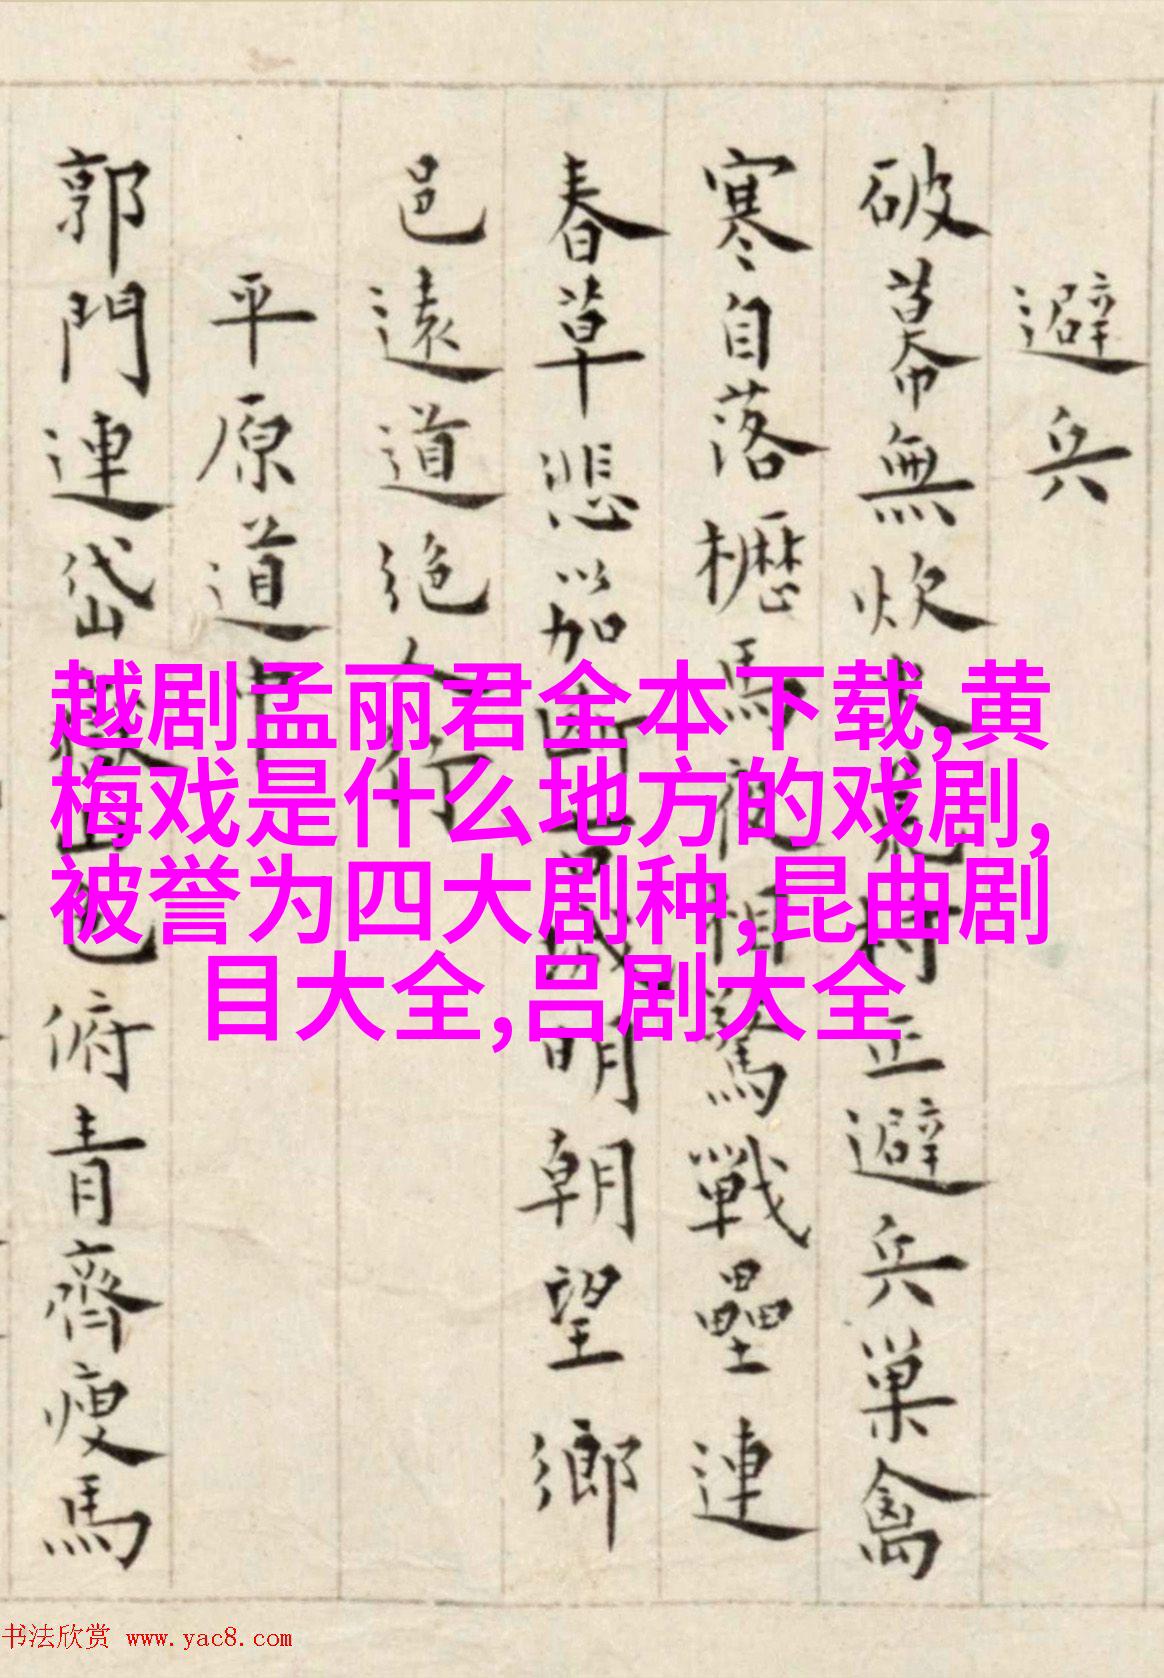 避兵
破幕無炊人村正避兵巢禽
寒自落櫪馬夜相驚戰壘連
春草悲笳明朝望鄉
邑遠道絕人行
平原道中
郭門連岱山色俯青齊瘦馬
越剧孟丽君全本下载,黄
梅戏是什么地方的戏剧,
被誉为四大剧种,昆曲剧
目大全,吕剧大全
书法欣赏 www.yac8.com